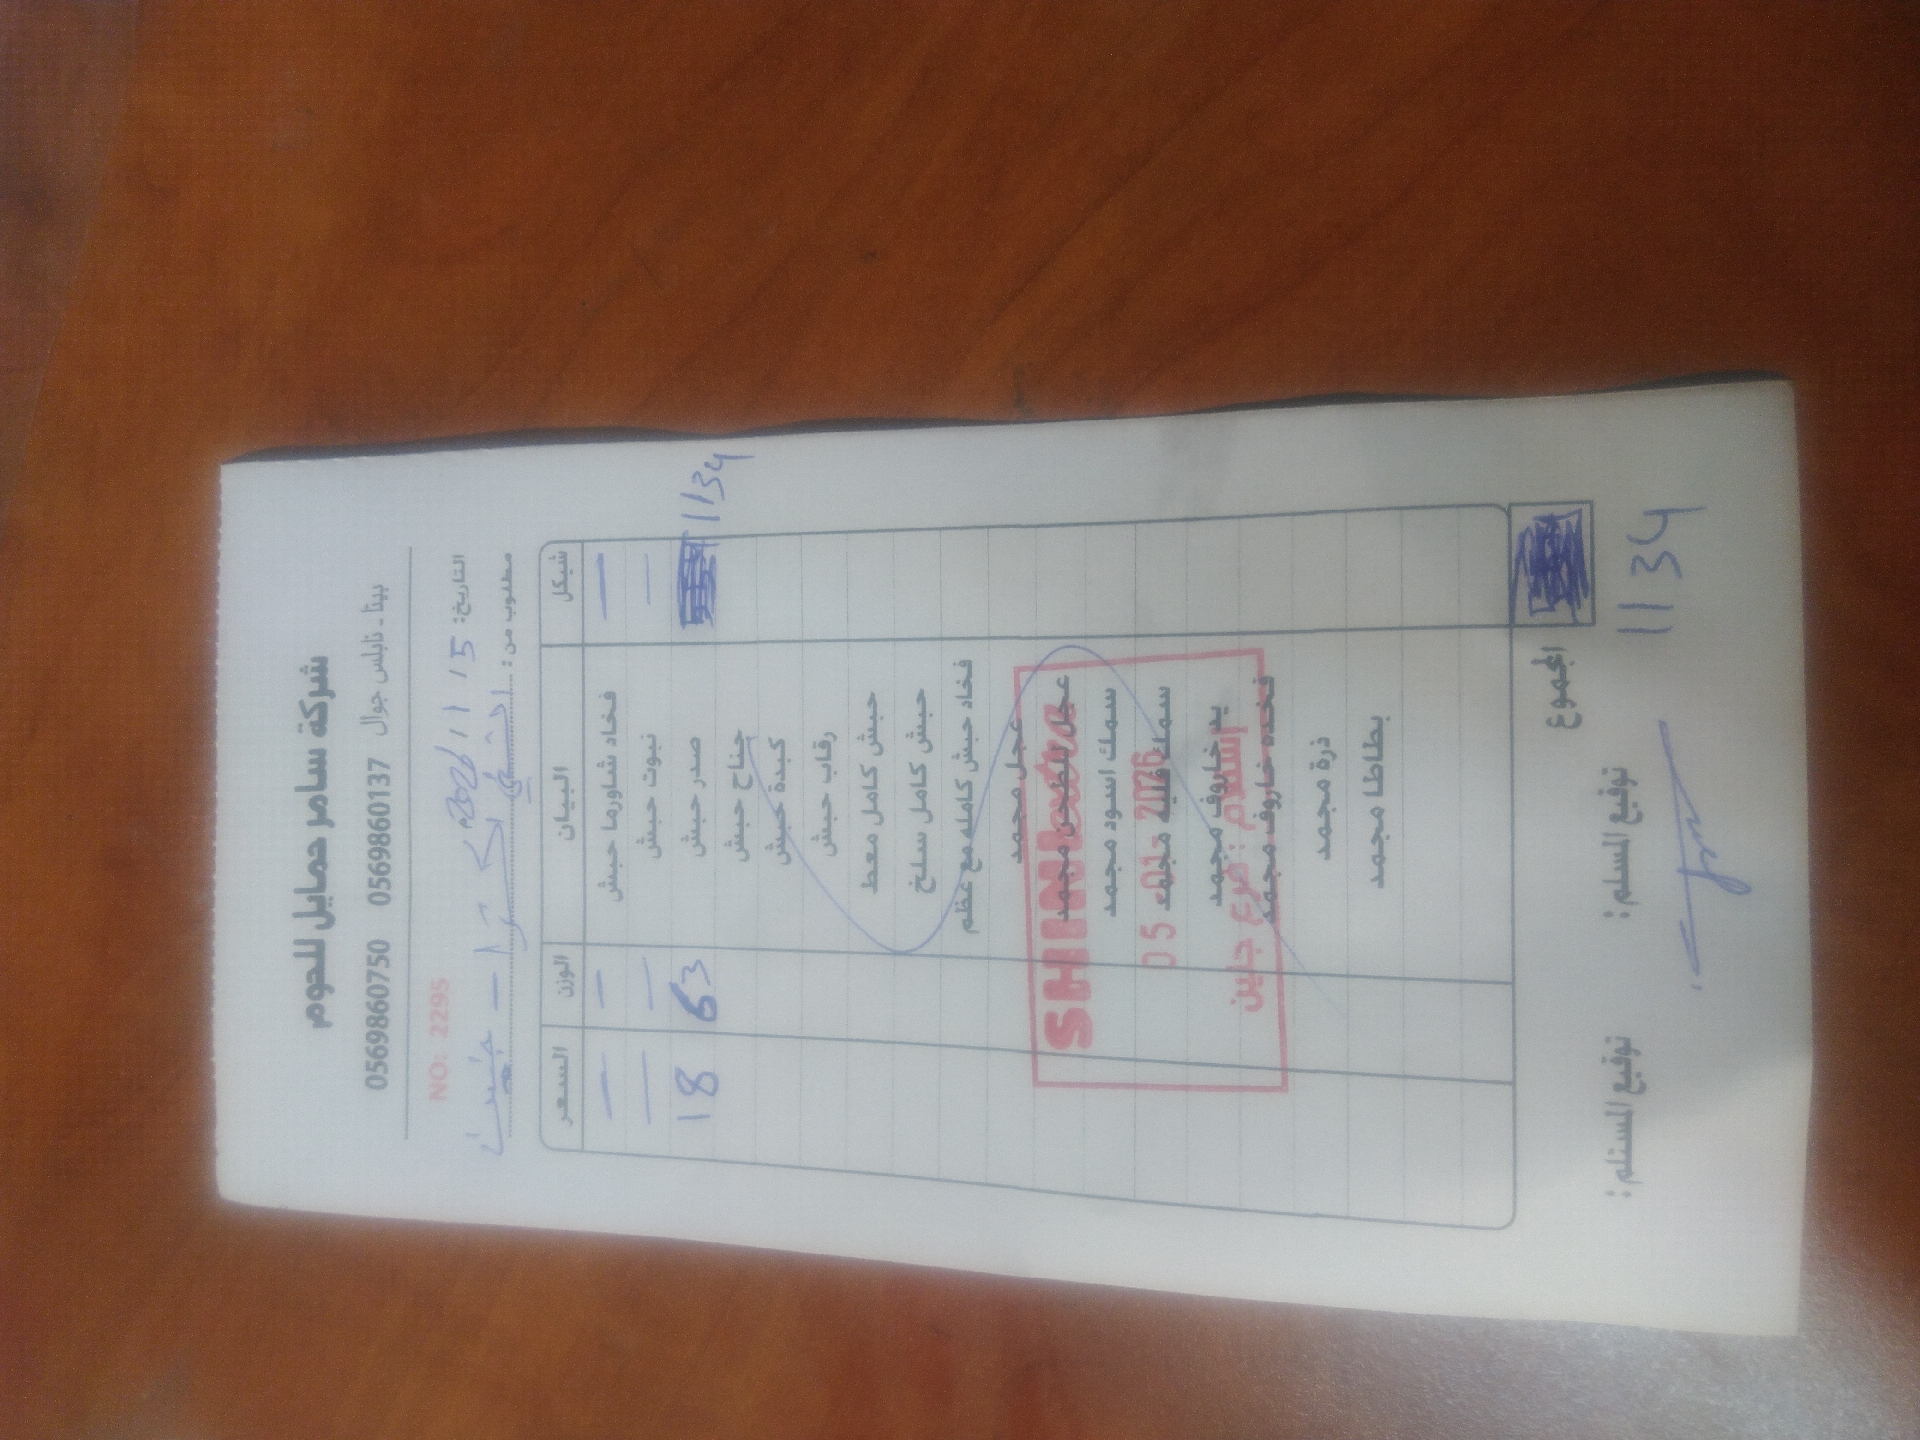 شركة سامر حمايل للحوم
بيتا - نابلس جوال 0569860137 0569860750
التاريخ: 2026/1/15 NO: 2295
مطلوب من:
السعر الوزن البيان شيكل
— — فخاد شاورما حبش —
— — نبوت حبش —
18 63 صدر حبش 1134
جناح حبش
كبدة حبش
رقاب حبش
حبش كامل معط
حبش كامل سلخ
فخاد حبش كامله مع عظم
عجل مجمد
عجل للطحن مجمد
سمك اسود مجمد
سمك فليه مجمد
يد خاروف مجمد
فخده خاروف مجمد
ذرة مجمد
بطاطا مجمد
SHINI
05 2026
استلام: فرع جنين
المجموع
1134
توقيع المستلم: توقيع المسلم: